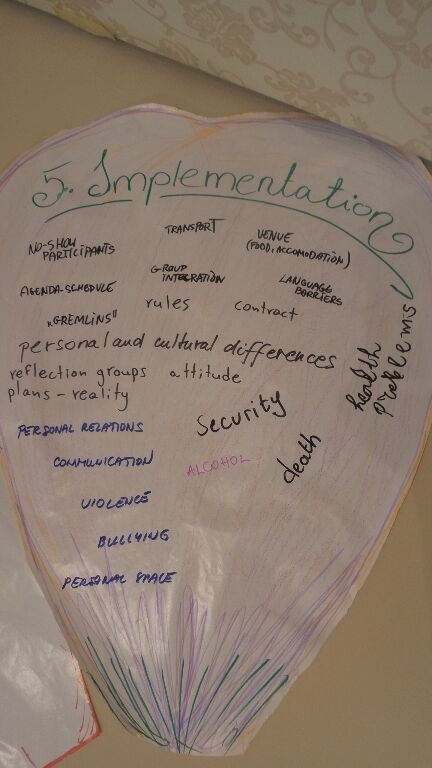 5. Implementation
TRANSPORT
VENUE
(FOOD, ACCOMODATION)
NO-SHOW
PARTICIPANTS
GROUP
INTEGRATION
LANGUAGE
BARRIERS
AGENDA-SCHEDULE
rules
contract
„GREMLINS"
personal and cultural differences
health
problems
reflection groups
attitude
plans - reality
security
PERSONAL RELATIONS
COMMUNICATION
ALCOHOL
death
VIOLENCE
BULLYING
PERSONAL SPACE